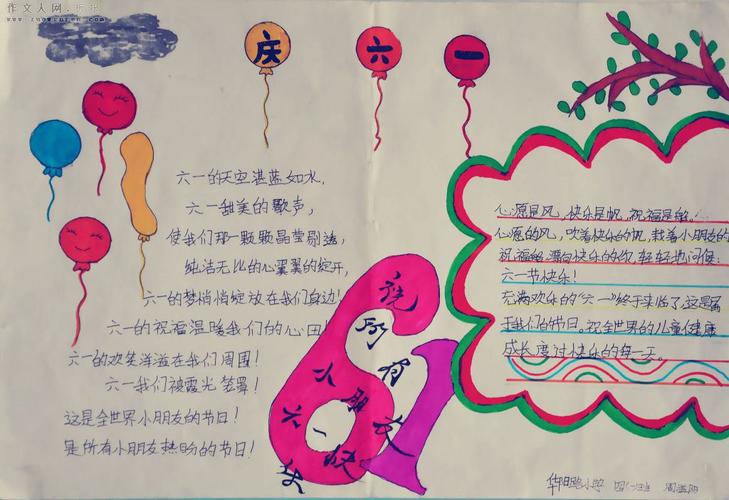 作文人网
庆六一
六一的天空湛蓝如水,
六一甜美的歌声,
使我们那一颗颗晶莹剔透,
纯洁无比的心冀冀的绽开,
六一的梦悄悄绽放在我们身边!
六一的祝福温暖我们的心田!
六一的欢笑洋溢在我们周围!
六一我们被霞光笼罩!
这是全世界小朋友的节日!
是所有小朋友热盼的节日!
祝所有小朋友六一快乐
61
心愿是风,快乐是帆,祝福是船。
心愿的风,吹着快乐的帆,载着小朋友的
祝福船,漂向快乐的你,轻轻地问候:
六一节快乐!
充满欢乐的“六一”终于来临了,这是属
于我们的节日。祝全世界的儿童健康
成长,度过快乐的每一天。
华阳路小学 四(一)班